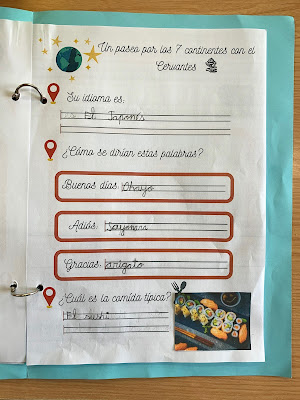 Un paseo por los 7 continentes con el
Cervantes
Su idioma es:
El Japonés
¿Cómo se dirían estas palabras?
Buenos días: Ohayo
Adiós: Sayonara
Gracias: arigato
¿Cuál es la comida típica?
El sushi